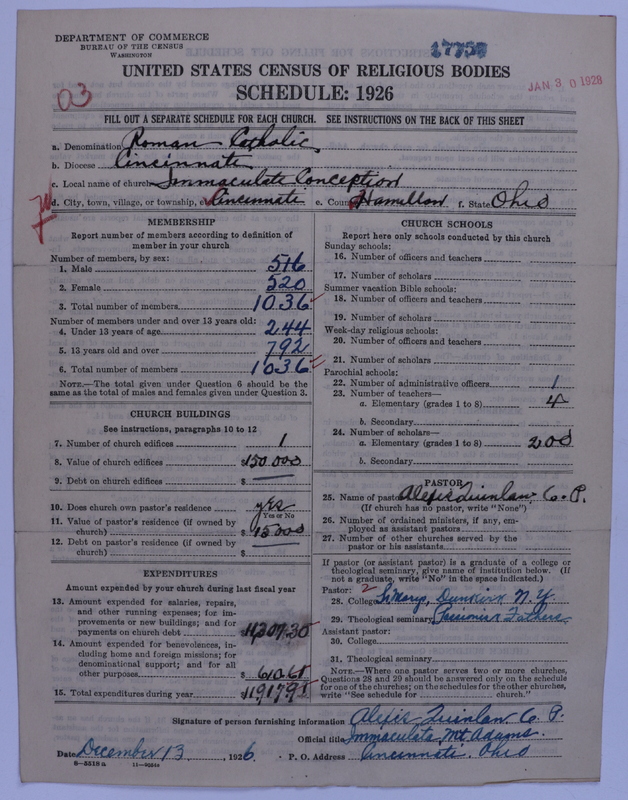 DEPARTMENT OF COMMERCE
BUREAU OF THE CENSUS
WASHINGTON
17759
JAN 30 1928
UNITED STATES CENSUS OF RELIGIOUS BODIES
SCHEDULE: 1926
03
FILL OUT A SEPARATE SCHEDULE FOR EACH CHURCH. SEE INSTRUCTIONS ON THE BACK OF THIS SHEET
a. Denomination Roman Catholic
b. Diocese Cincinnati
c. Local name of church Immaculate Conception
d. City, town, village, or township, Cincinnati e. County Hamilton f. State Ohio
MEMBERSHIP
Report number of members according to definition of
member in your church
Number of members, by sex:
1. Male 516
2. Female 520
3. Total number of members 1036
Number of members under and over 13 years old:
4. Under 13 years of age 244
5. 13 years old and over 792
6. Total number of members 1036
NOTE.—The total given under Question 6 should be the
same as the total of males and females given under Question 3.
CHURCH BUILDINGS
See instructions, paragraphs 10 to 12
7. Number of church edifices 1
8. Value of church edifices $150.000
9. Debt on church edifices $
10. Does church own pastor's residence yes
Yes or No
11. Value of pastor's residence (if owned by
church) $15000
12. Debt on pastor's residence (if owned by
church) $
EXPENDITURES
Amount expended by your church during last fiscal year
13. Amount expended for salaries, repairs,
and other running expenses; for im-
provements or new buildings; and for
payments on church debt
14. Amount expended for benevolences, in-
cluding home and foreign missions; for
denominational support; and for all
other purposes $
15. Total expenditures during year
CHURCH SCHOOLS
Report here only schools conducted by this church
Sunday schools:
16. Number of officers and teachers
17. Number of scholars
Summer vacation Bible schools:
18. Number of officers and teachers
19. Number of scholars
Week-day religious schools:
20. Number of officers and teachers
21. Number of scholars
Parochial schools:
22. Number of administrative officers 1
23. Number of teachers—
a. Elementary (grades 1 to 8) 4
b. Secondary
24. Number of scholars—
a. Elementary (grades 1 to 8) 200
b. Secondary
PASTOR
25. Name of pastor Alexis Quinlan C. P.
(If church has no pastor, write "None")
26. Number of ordained ministers, if any, em-
ployed as assistant pastors
27. Number of other churches served by the
pastor or his assistants
If pastor (or assistant pastor) is a graduate of a college or
theological seminary, give name of institution below. (If
not a graduate, write "No" in the space indicated.)
Pastor:
28. College St Marys, Dunkirk N. Y.
29. Theological seminary Passionist Fathers
Assistant pastor:
30. College
31. Theological seminary
NOTE.—Where one pastor serves two or more churches,
Questions 28 and 29 should be answered only on the schedule
for one of the churches; on the schedules for the other churches,
write "See schedule for church."
Signature of person furnishing information Alexis Quinlan C. P.
Official title Immaculata, Mt. Adams.
Date December 13, 1926. P. O. Address Cincinnati. Ohio
8—5518a